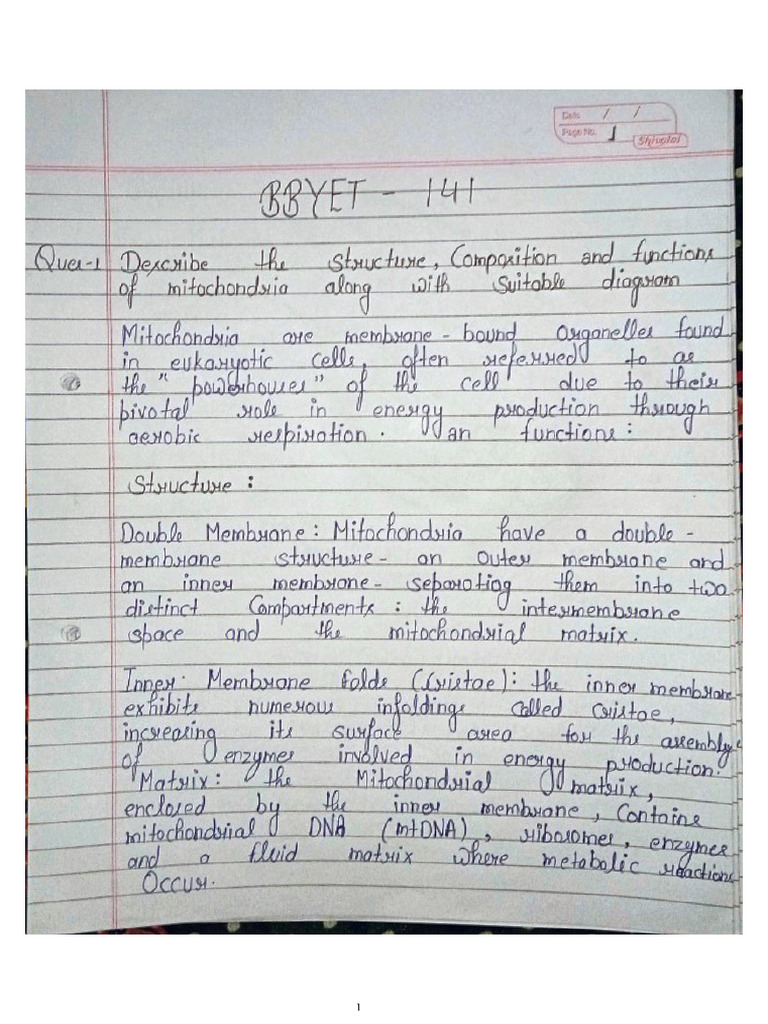 Date / /
Page No. 1
Shivalal
BBYET - 141
Ques-1 Describe the structure, Composition and functions
of mitochondria along with suitable diagram
Mitochondria are membrane - bound organelles found
in eukaryotic cells, often referred to as
the "powerhouses" of the cell due to their
pivotal role in energy production through
aerobic respiration. an functions:
Structure :
Double Membrane : Mitochondria have a double -
membrane structure - an outer membrane and
an inner membrane - separating them into two
distinct Compartments : the intermembrane
space and the mitochondrial matrix.
Inner Membrane folds (Cristae) : the inner membrane
exhibits numerous infoldings called Cristae,
increasing its surface area for the assembly
of enzymes involved in energy production.
Matrix : the Mitochondrial matrix,
enclosed by the inner membrane, Contains
mitochondrial DNA (mtDNA), ribosomes, enzymes
and a fluid matrix where metabolic reactions
Occur.
1